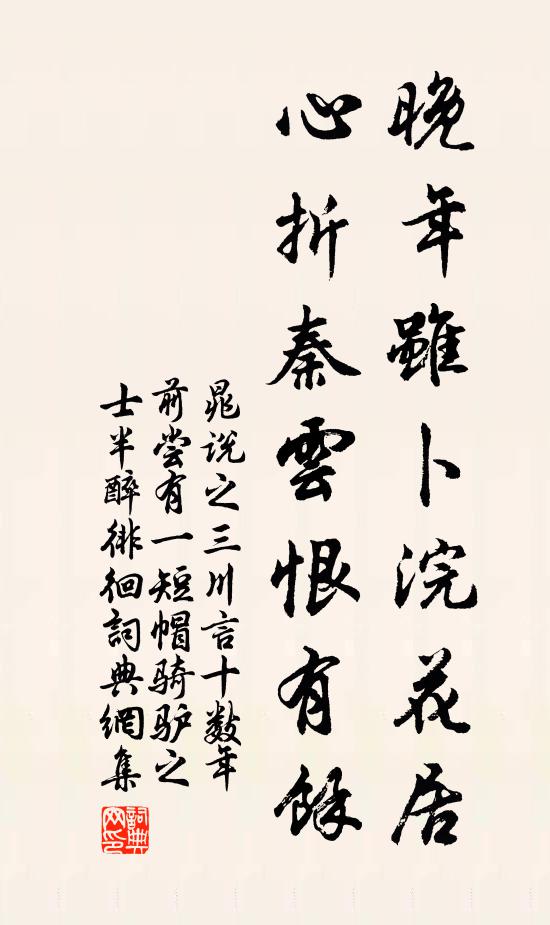 晚年雖卜浣花居
心折秦雲恨有餘
晁说之三川言十数年
前尝有一短帽骑驴之
士半醉徘徊詞典網集
詞典
網印